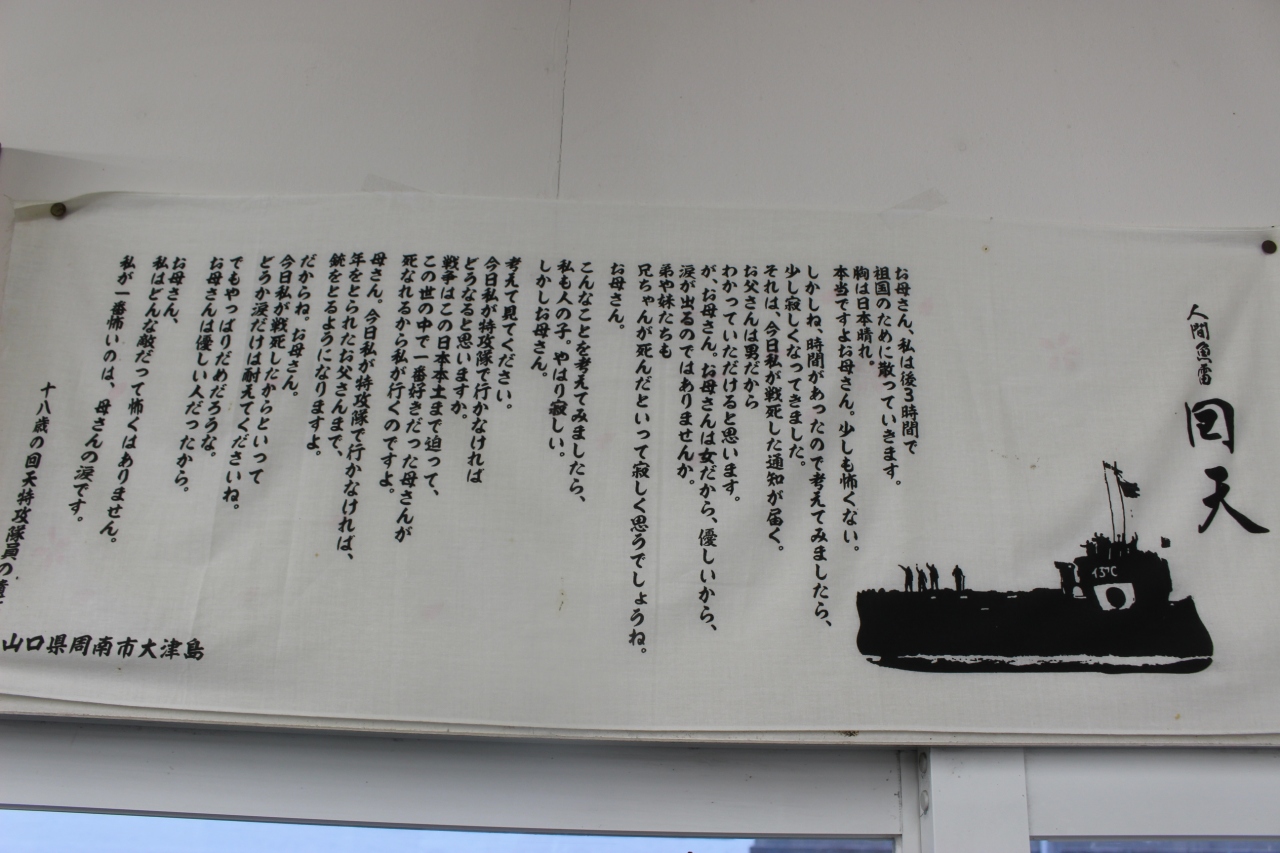 人間魚雷
回天
お母さん、私は後3時間で
祖国のために散っていきます。
胸は日本晴れ。
本当ですよお母さん。少しも怖くない。
しかしね、時間があったので考えてみましたら、
少し寂しくなってきました。
それは、今日私が戦死した通知が届く。
お父さんは男だから
わかっていただけると思います。
が、お母さん。お母さんは女だから、優しいから、
涙が出るのではありませんか。
弟や妹たちも
兄ちゃんが死んだといって寂しく思うでしょうね。
お母さん。
こんなことを考えてみましたら、
私も人の子。やはり寂しい。
しかしお母さん。
考えて見てください。
今日私が特攻隊で行かなければ
どうなると思いますか。
戦争はこの日本本土まで迫って、
この世の中で一番好きだった母さんが
死なれるから私が行くのですよ。
母さん。今日私が特攻隊で行かなければ、
年をとられたお父さんまで、
銃をとるようになりますよ。
だからね。お母さん。
今日私が戦死したからといって
どうか涙だけは耐えてくださいね。
でもやっぱりだめだろうな。
お母さんは優しい人だったから。
お母さん、
私はどんな敵だって怖くはありません。
私が一番怖いのは、母さんの涙です。
十八歳の回天特攻隊員の
山口県周南市大津島